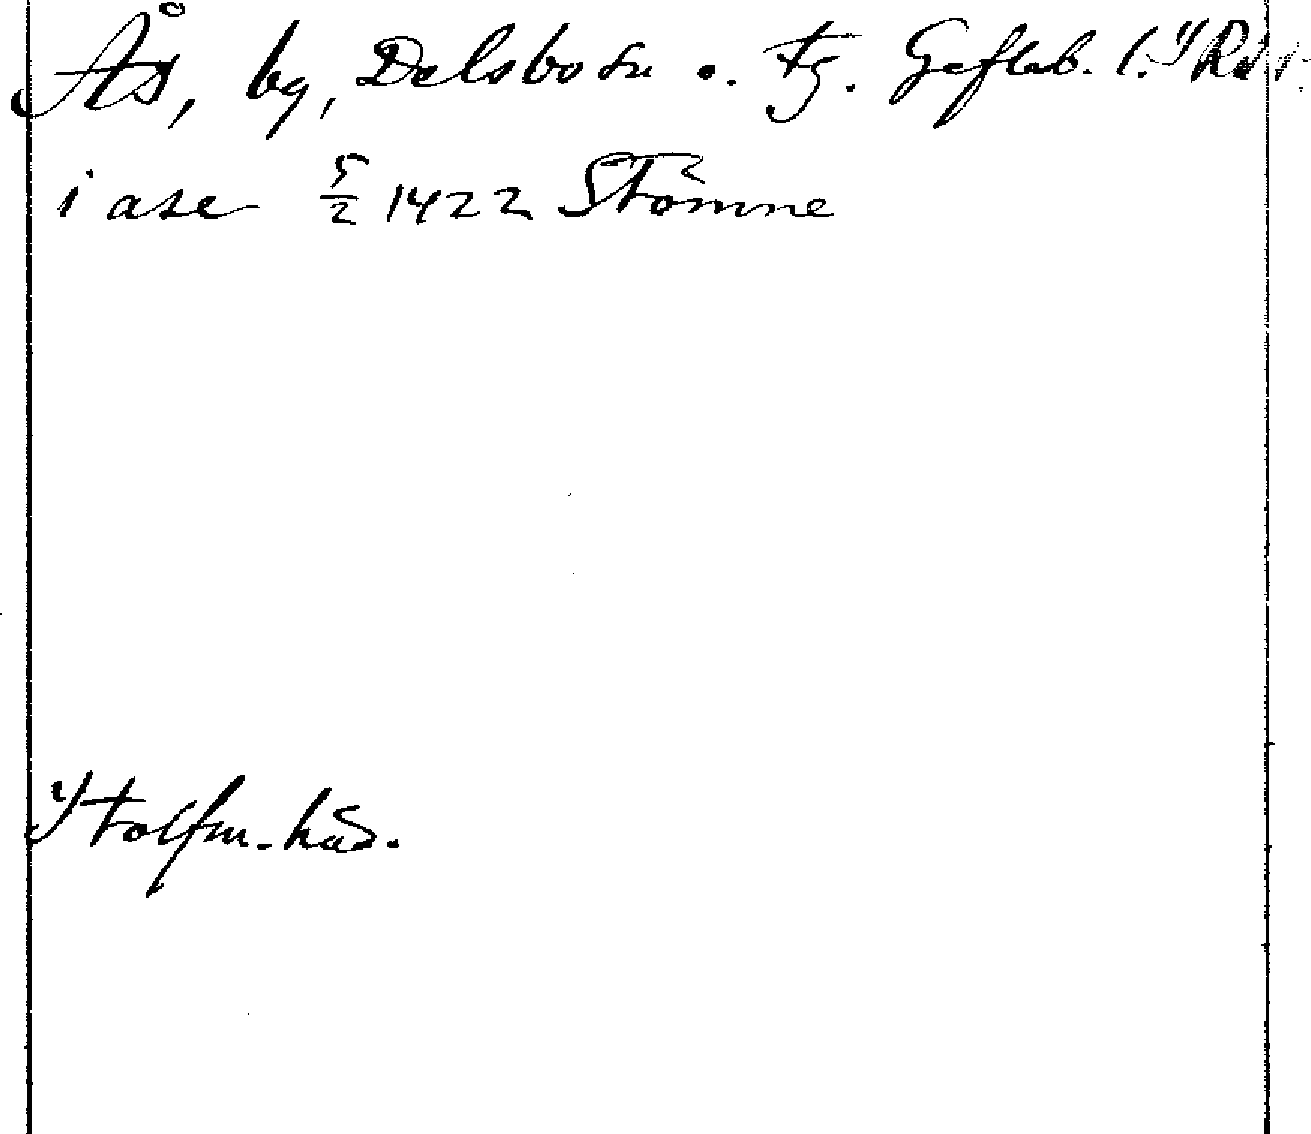 Ås, by, Delsbo sn o. tg. Gefleb. l. 1) RA
i ase 5/2 1422 Stömne
1) Tolfm.-häd.